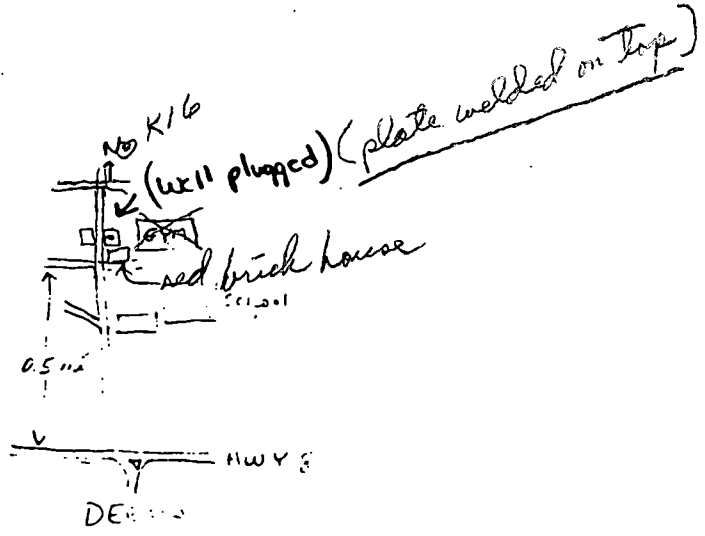 No K16
(well plugged) (plate welded on top)
GPM
red brick house
School
0.5 mi
HWY 8